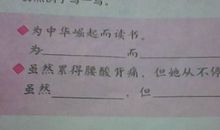 ◆为中华崛起而读书。
为________而________
◆虽然累得腰酸背痛，但她从不停
虽然________，但________